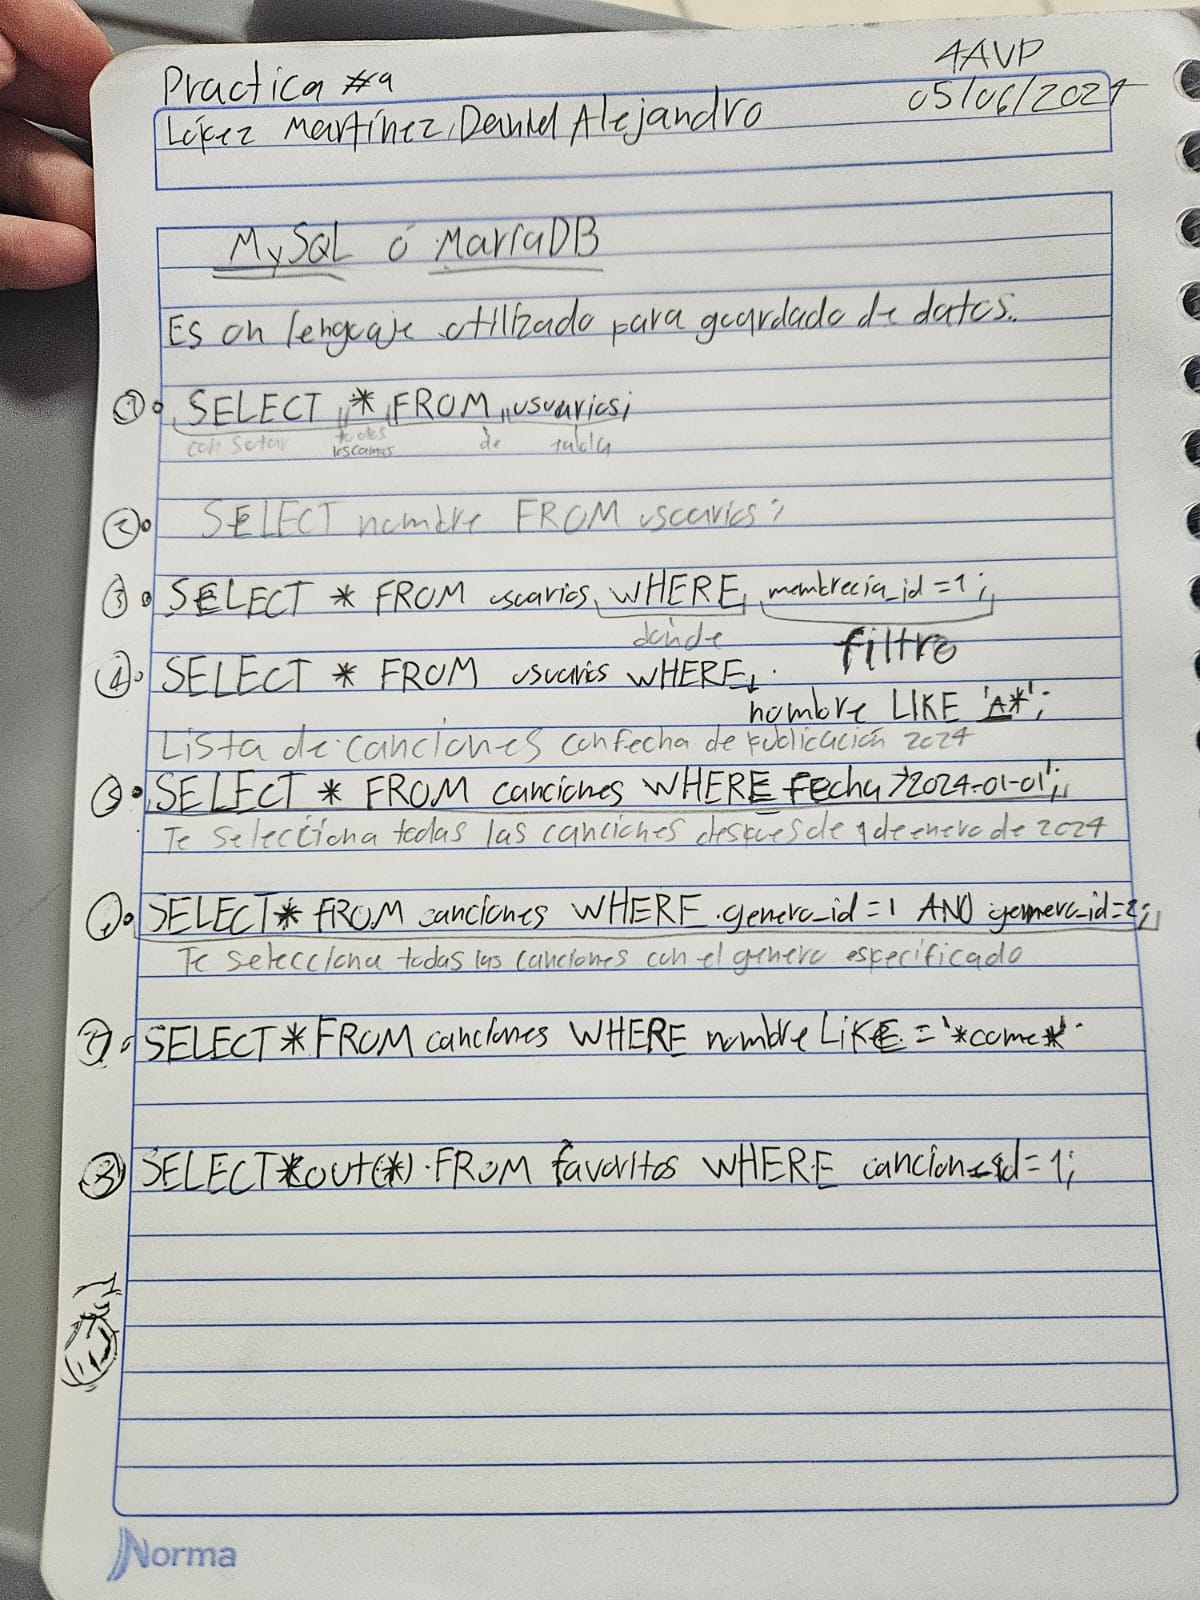 Practica #9
4AVP
López Martínez Daniel Alejandro
05/06/2024
MySQL ó MaríaDB
Es un lenguaje utilizado para guardado de datos.
① SELECT * FROM usuarios;
todos
los campos
de tabla
② SELECT nombre FROM usuarios;
③ SELECT * FROM usuarios WHERE membrecia_id = 1;
donde filtro
④ SELECT * FROM usuarios WHERE
nombre LIKE 'A*';
Lista de canciones con fecha de publicación 2024
⑤ SELECT * FROM canciones WHERE fecha > '2024-01-01';
Te selecciona todas las canciones despues de 1 de enero de 2024
SELECT * FROM canciones WHERE genero_id = 1 AND genero_id = 2;
Te selecciona todas las canciones con el genero especificado
⑦ SELECT * FROM canciones WHERE nombre LIKE = '*come*'
⑧ SELECT * cout(*) FROM favoritos WHERE cancion_id = 1;
Norma